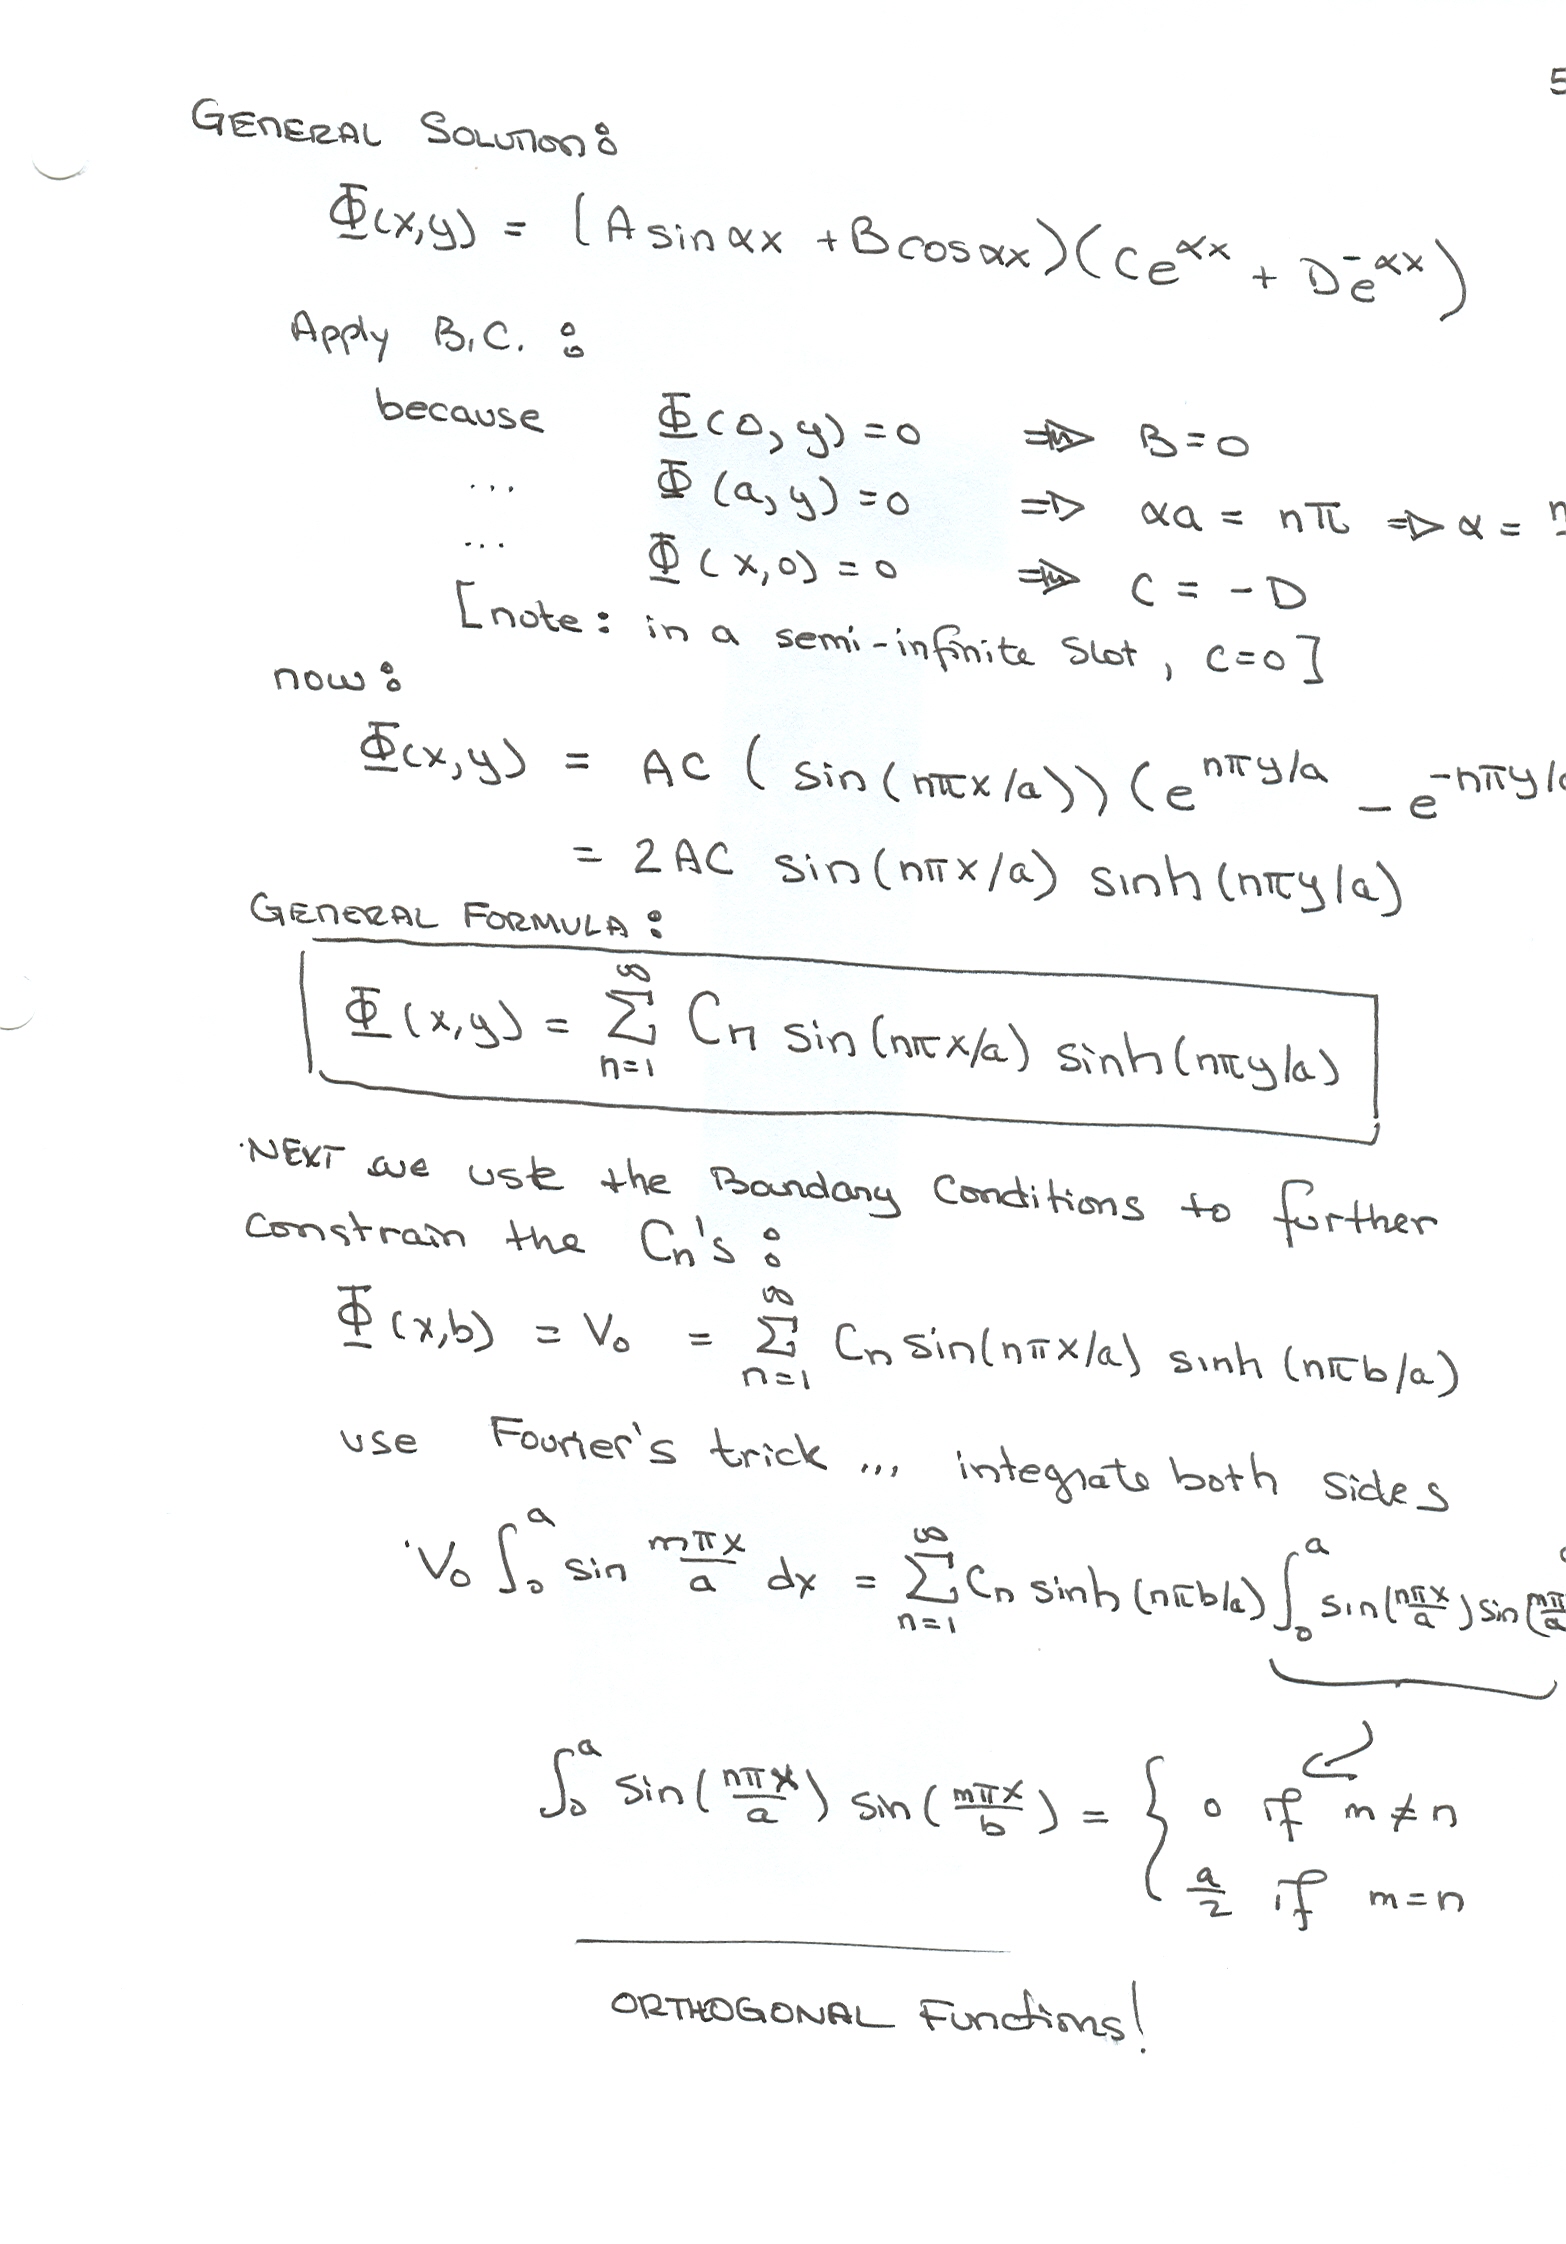 5
GENERAL SOLUTION:
Φ(x,y) = (A sin αx + B cos αx)(C e^{αx} + D e^{-αx})
Apply B.C. :
because Φ(0,y) = 0 ⇒ B = 0
... Φ(a,y) = 0 ⇒ αa = nπ ⇒ α =
... Φ(x,0) = 0 ⇒ C = -D
[note: in a semi-infinite slot, C=0]
now:
Φ(x,y) = AC ( sin(nπx/a))(e^{nπy/a} - e^{-nπy/
= 2AC sin(nπx/a) sinh(nπy/a)
GENERAL FORMULA:
Φ(x,y) = ∑_{n=1}^{∞} Cn sin(nπx/a) sinh(nπy/a)
NEXT we use the Boundary Conditions to further
constrain the Cn's :
Φ(x,b) = V₀ = ∑_{n=1}^{∞} Cn sin(nπx/a) sinh(nπb/a)
use Fourier's trick ... integrate both sides
V₀ ∫₀^a sin mπx/a dx = ∑_{n=1}^{∞} Cn sinh(nπb/a) ∫₀^a sin(nπx/a) sin(mπ/a
∫₀^a sin(nπx/a) sin(mπx/b) = { 0 if m ≠ n
a/2 if m = n
ORTHOGONAL Functions!